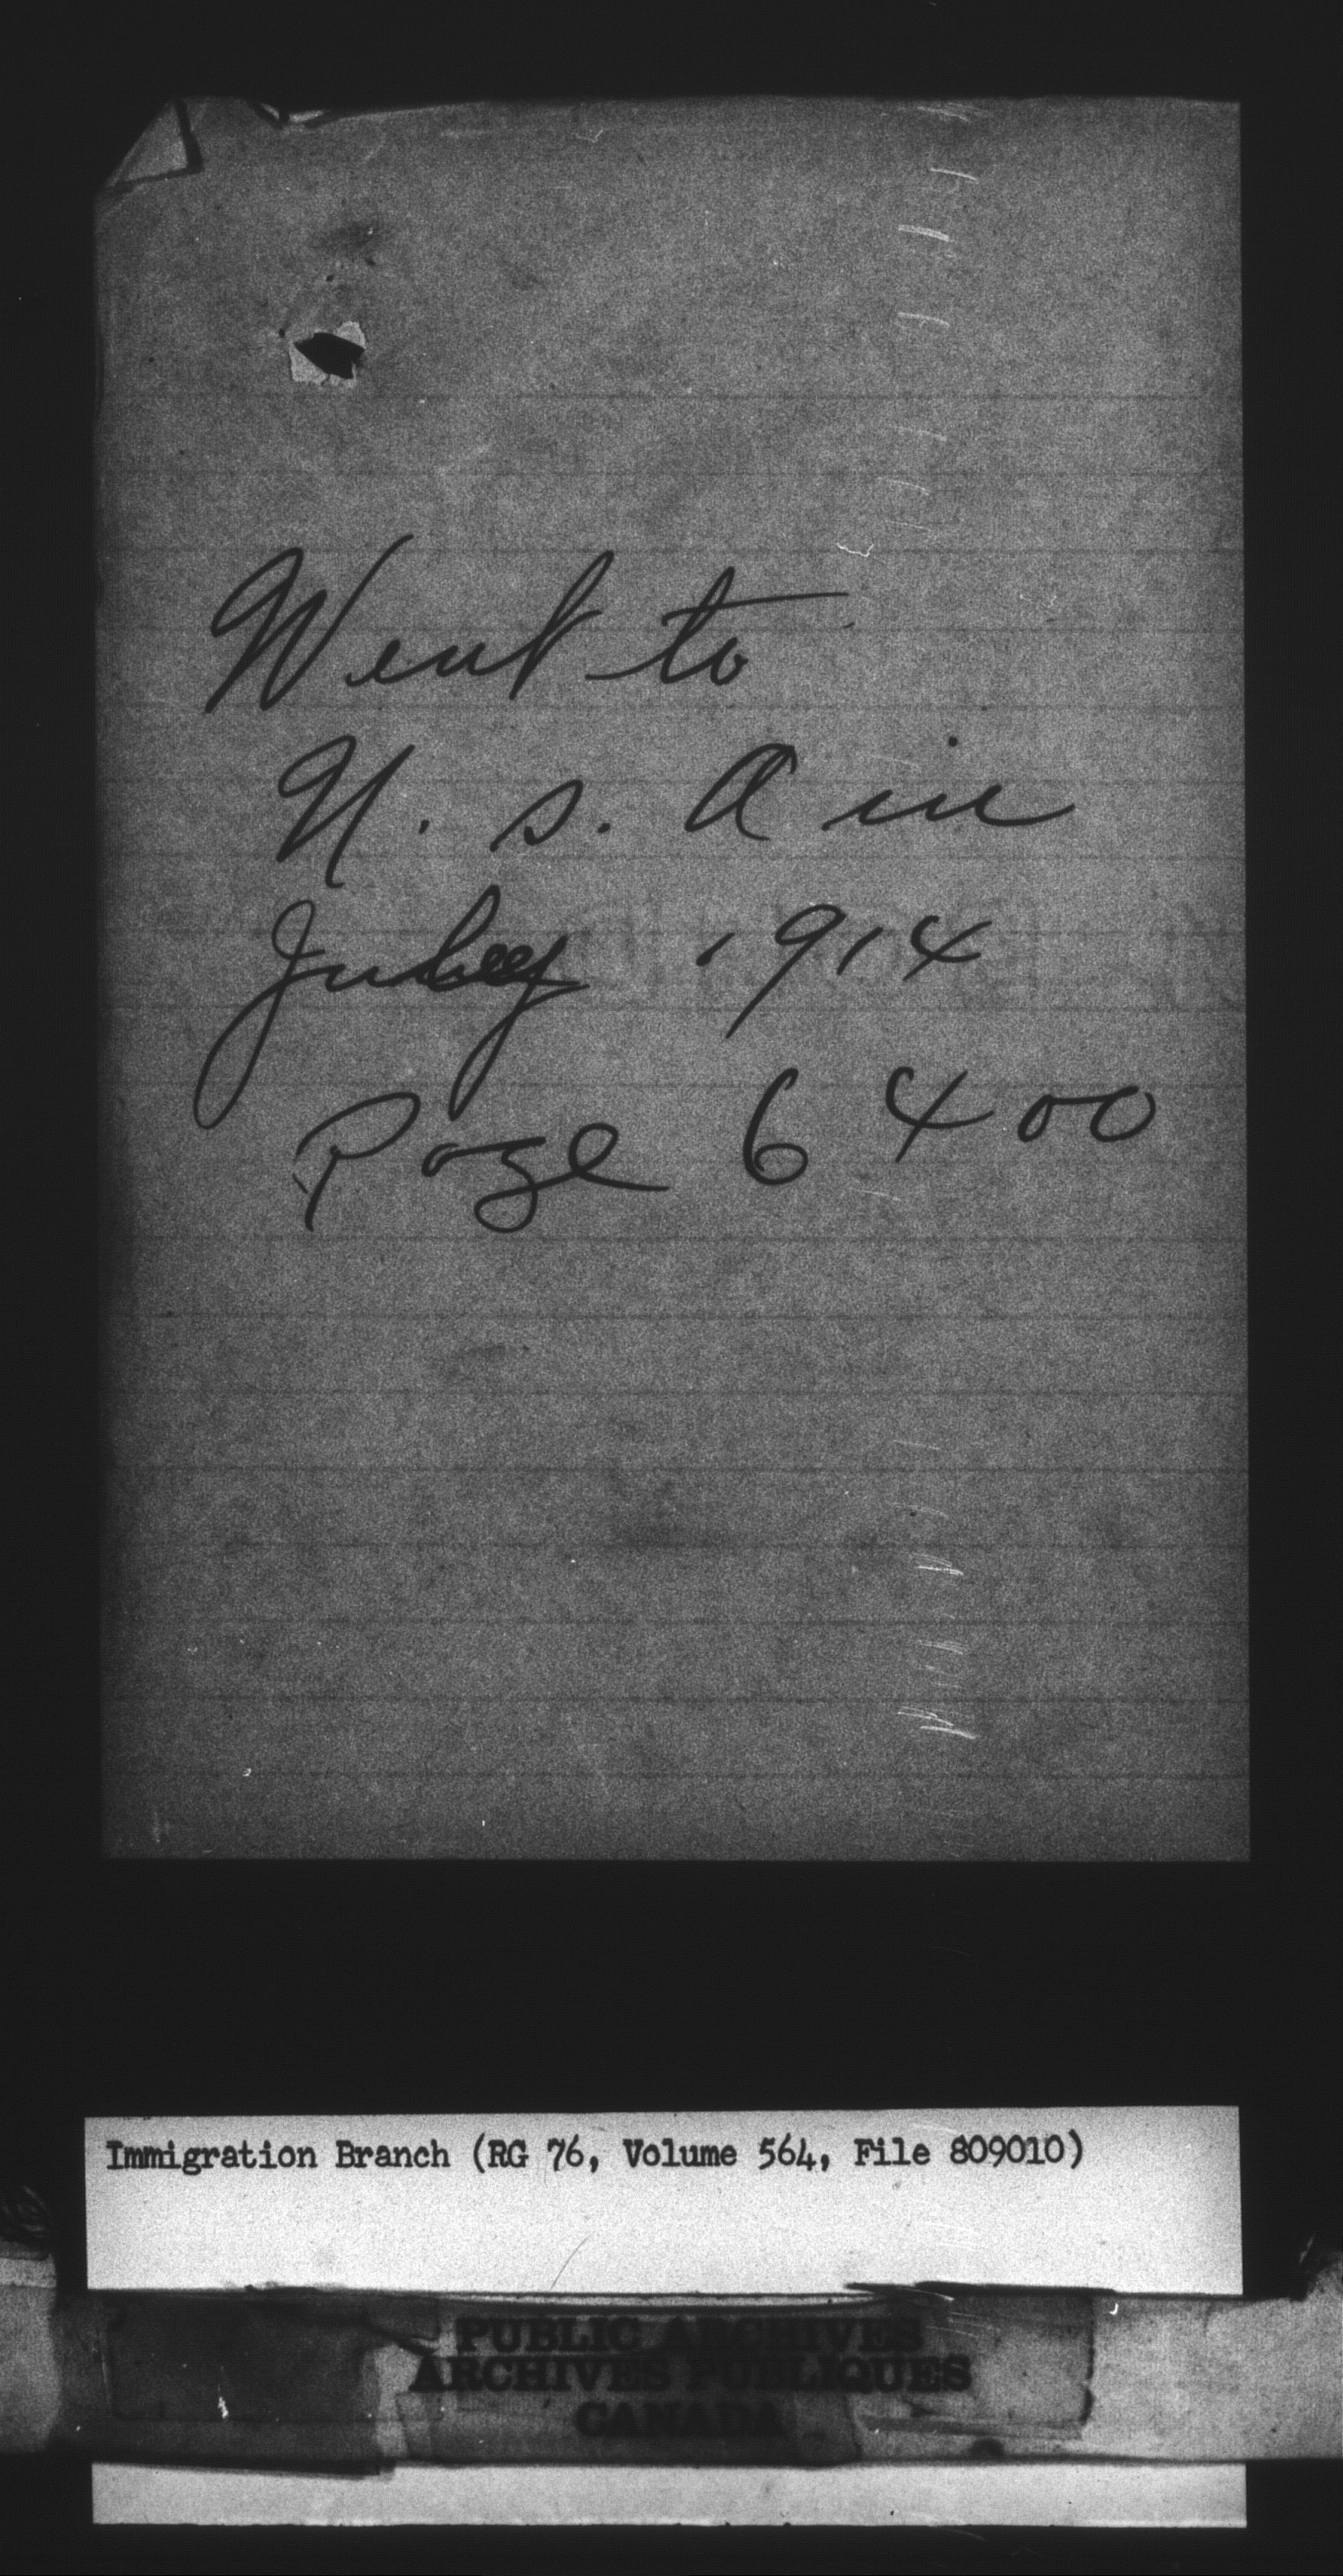 Went to
U. S. A in
July 1914
Page 6400
Immigration Branch (RG 76, Volume 564, File 809010)
PUBLIC ARCHIVES
ARCHIVES PUBLIQUES
CANADA